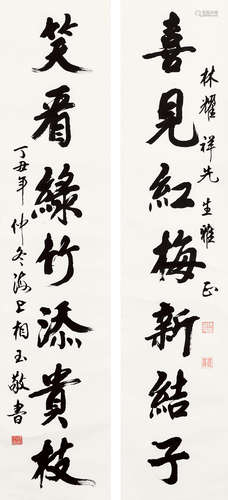 喜見紅梅新結子
林耀祥先生雅正
笑看綠竹添貴枝
丁丑年仲冬海上相玉敬書